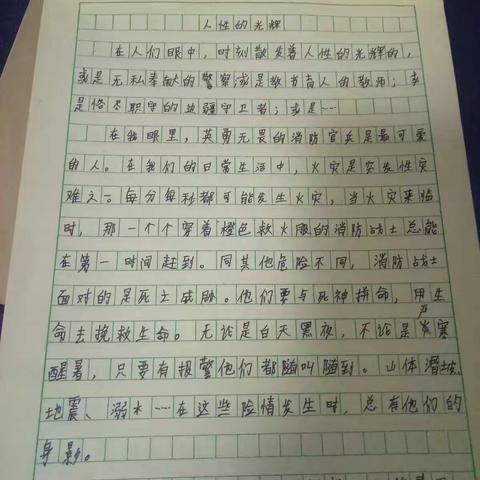 人性的光辉
在人们眼中，时刻散发着人性的光辉的，
或是无私奉献的警察；或是教书育人的教师；或
是恪尽职守的边疆守卫者；或是……
在我眼里，英勇无畏的消防官兵是最可爱
的人。在我们的日常生活中，火灾是突发性灾
难之一。每分每秒都可能发生火灾，当火灾来临
时，那一个个穿着橙色救火服的消防战士总能
在第一时间赶到。同其他危险不同，消防战士
面对的是死亡威胁。他们要与死神拼命，用生
命去挽救生命。无论是白天黑夜，不论是严寒
醒暑，只要有报警他们都随叫随到。山体滑坡、
地震、溺水……在这些险情发生时，总有他们的
身影。